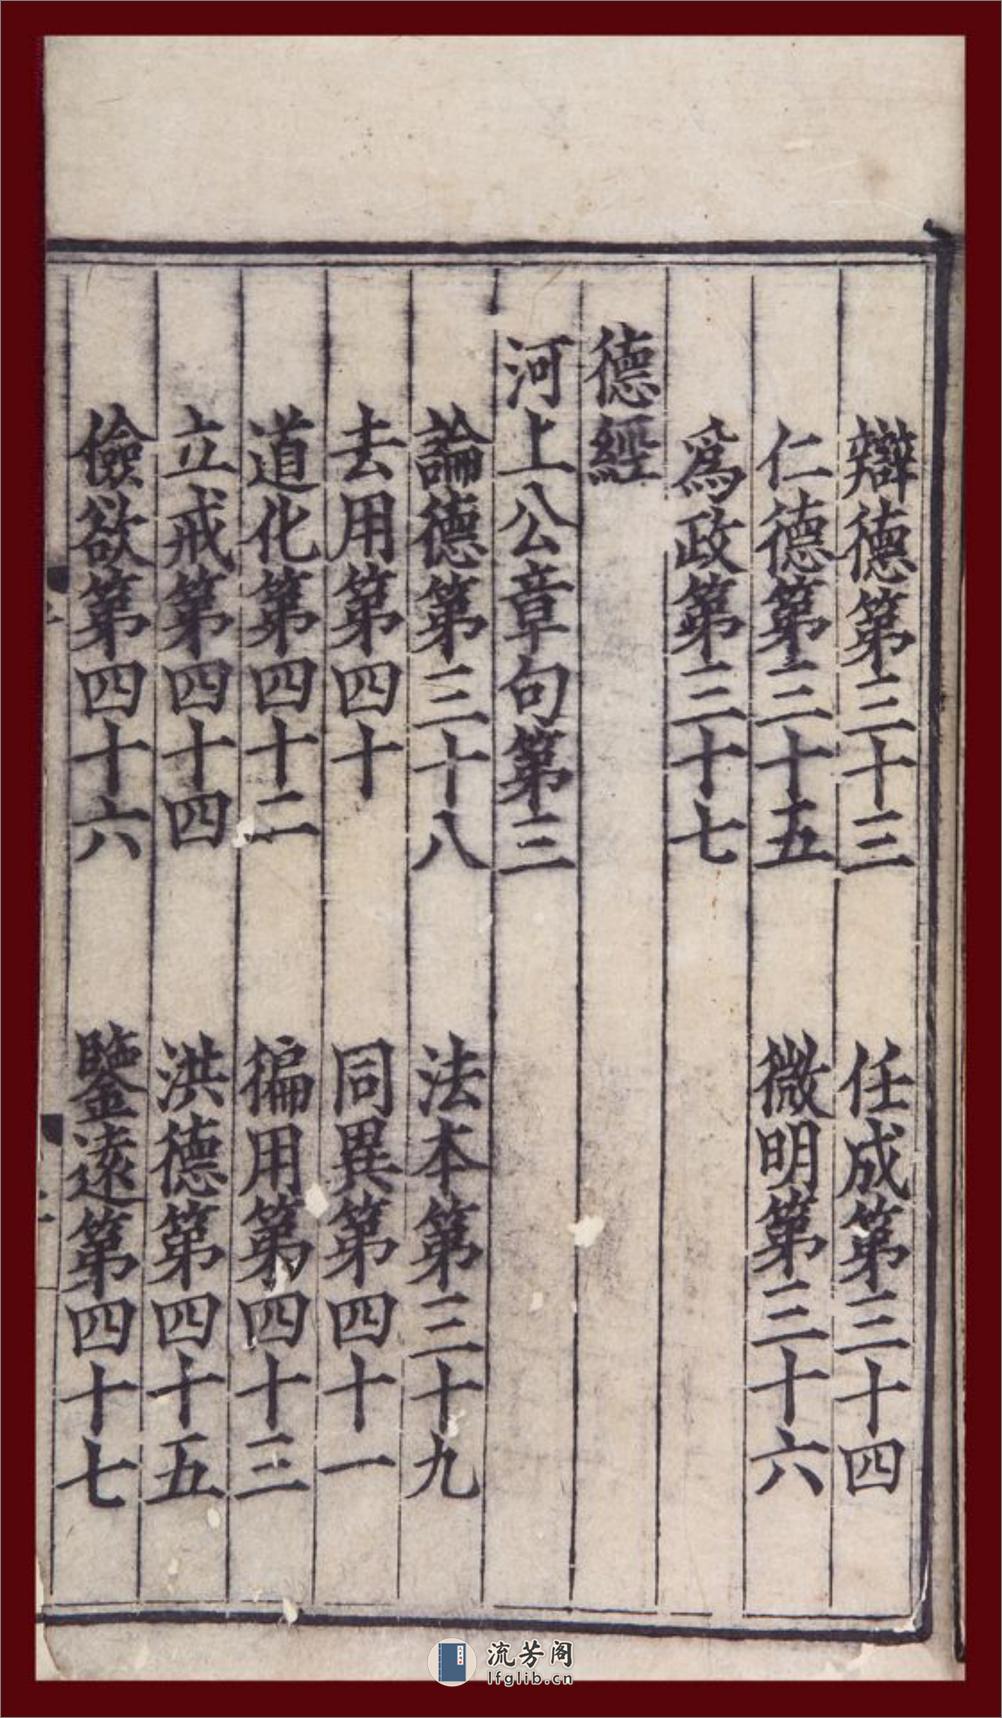 辯德第三十三　任成第三十四
仁德第三十五　微明第三十六
爲政第三十七
德經
河上公章句第三
論德第三十八　法本第三十九
去用第四十　同異第四十一
道化第四十二　徧用第四十三
立戒第四十四　洪德第四十五
儉欲第四十六　鑒遠第四十七
流芳阁
lfglib.cn